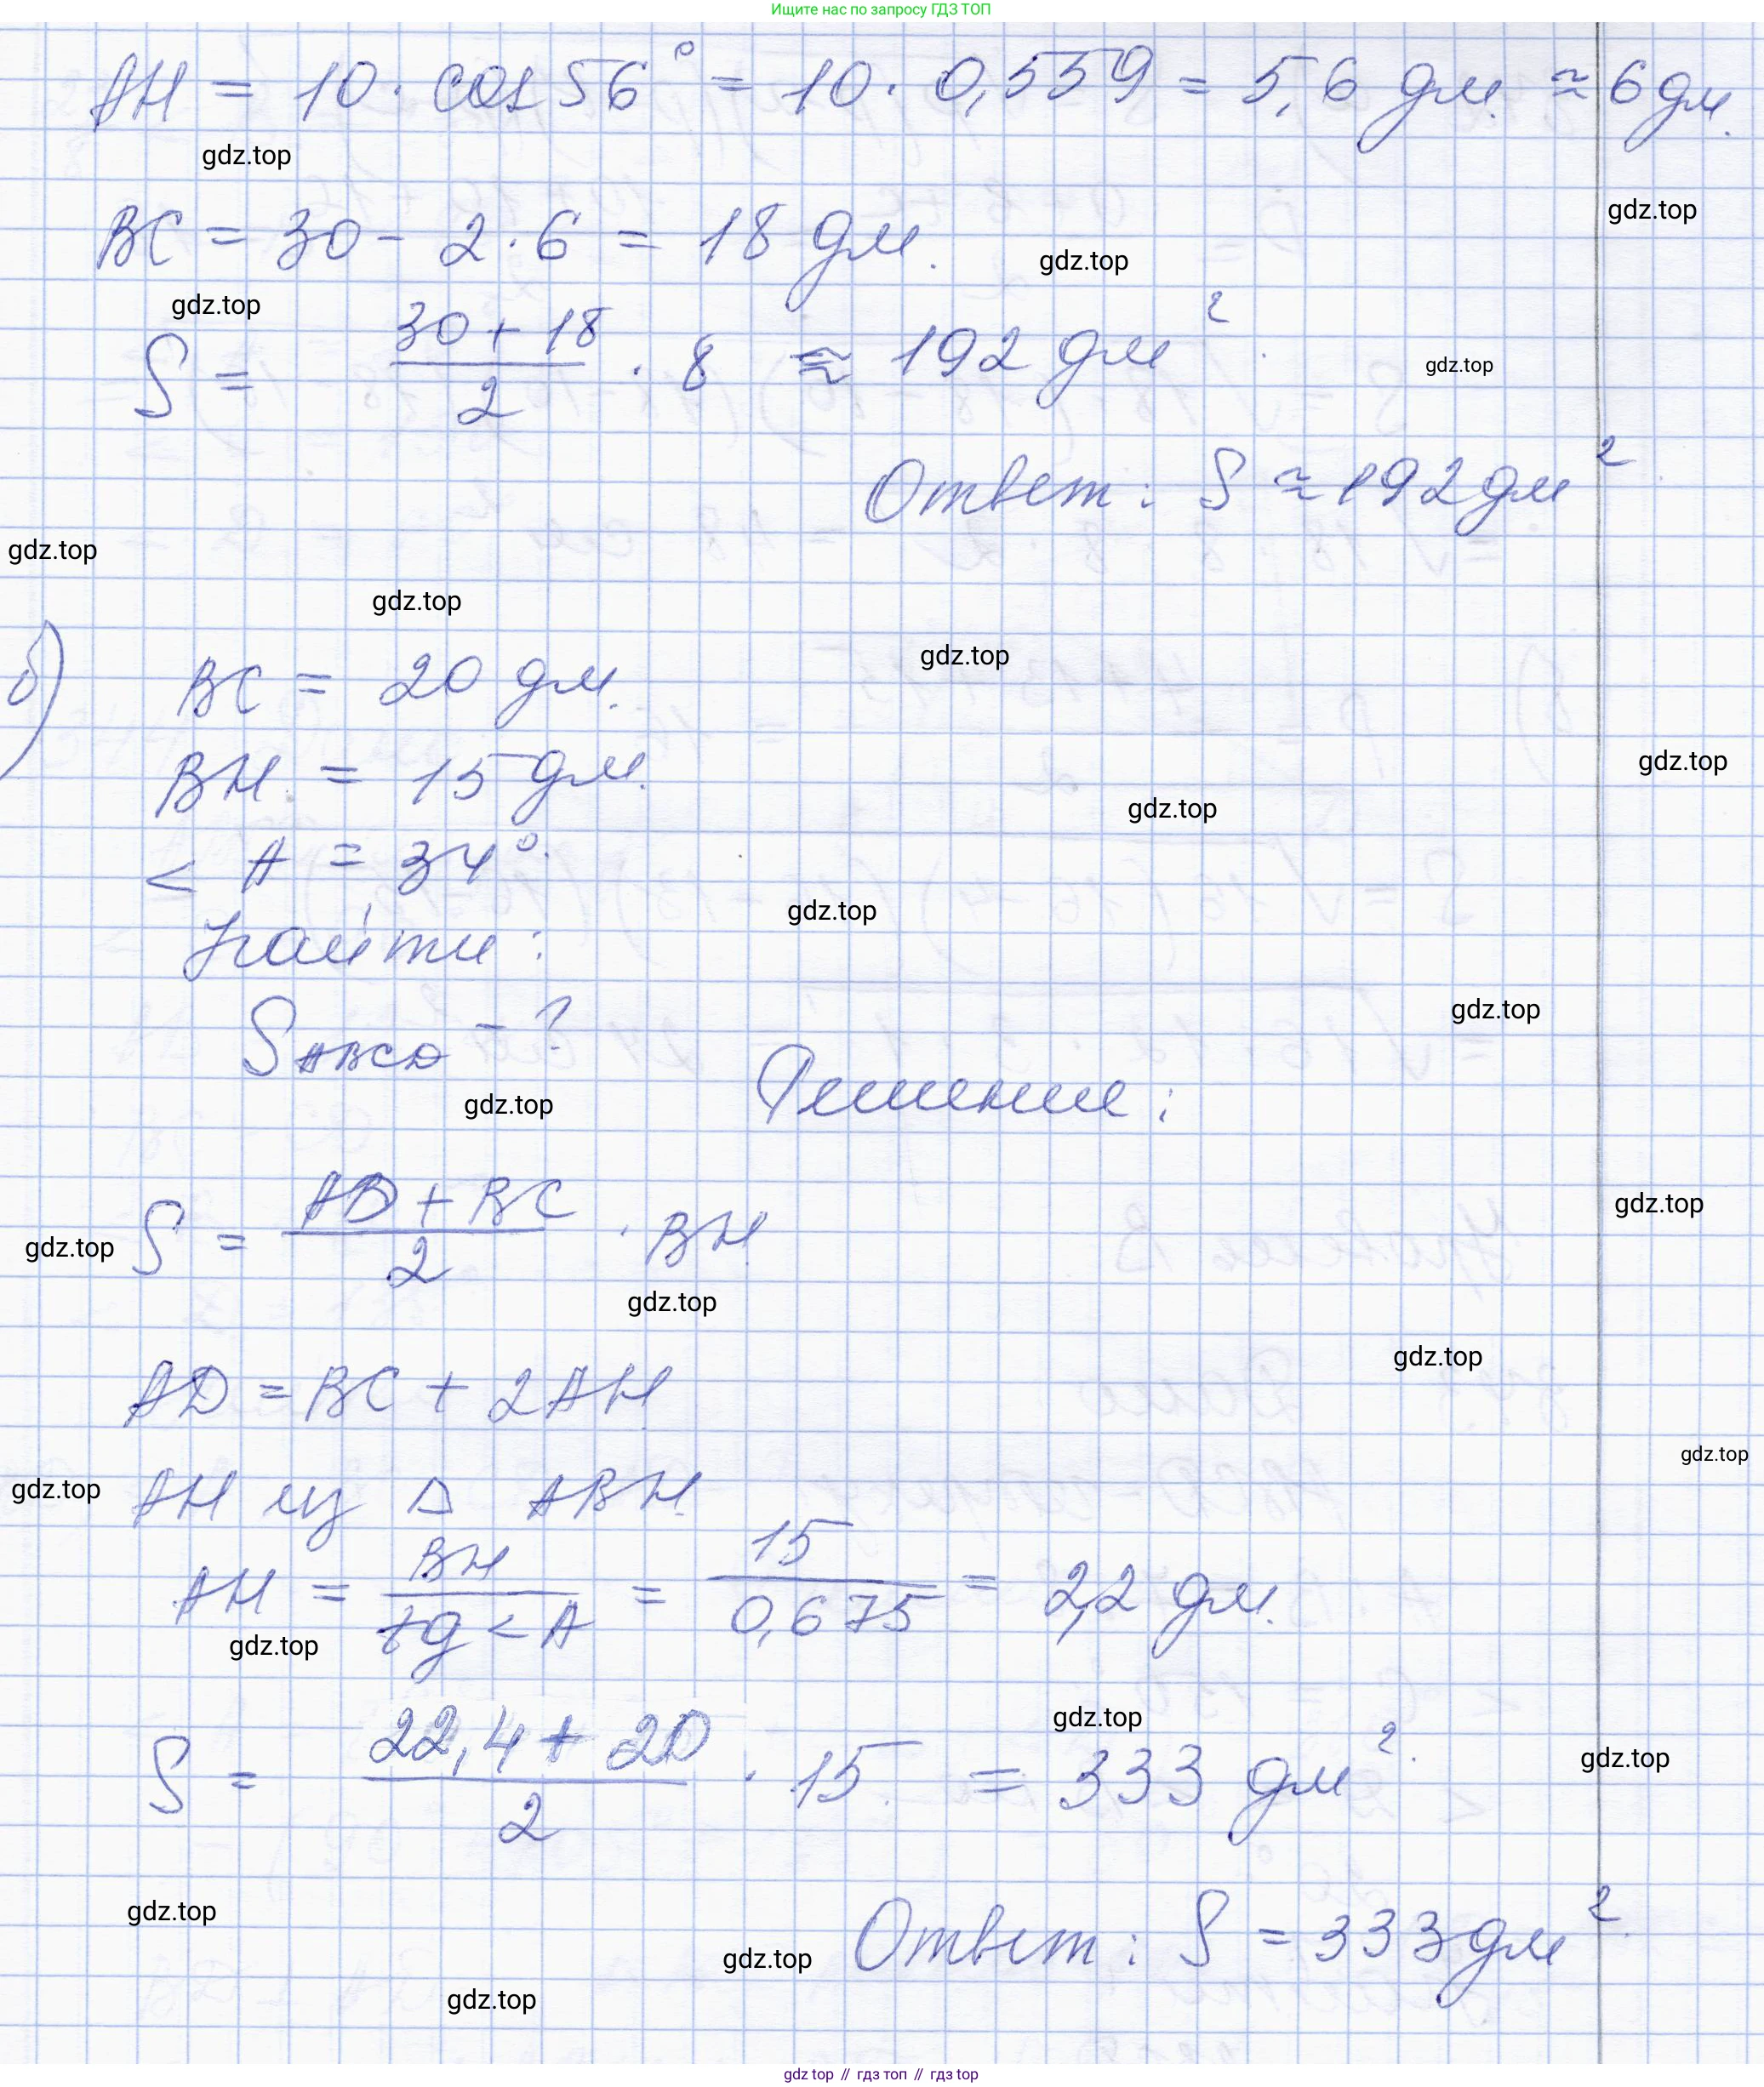 Ищите нас по запросу ГДЗ ТОП
AH = 10 · cos 56° = 10 · 0,559 = 5,6 дм ≈ 6 дм.
gdz.top
gdz.top
BC = 30 - 2 · 6 = 18 дм.
gdz.top
gdz.top
S = (30 + 18)/2 · 8 ≈ 192 дм².
gdz.top
Ответ: S ≈ 192 дм²
gdz.top
gdz.top
б) BC = 20 дм.
gdz.top
BH = 15 дм.
gdz.top
gdz.top
< A = 34°.
gdz.top
Найти:
gdz.top
SABCD - ?
Решение:
gdz.top
S = (AD + BC)/2 · BH
gdz.top
gdz.top
gdz.top
AD = BC + 2AH
gdz.top
gdz.top
AH из Δ ABH
gdz.top
AH = BH/tg < A = 15/0,675 = 2,2 дм.
gdz.top
S = (22,4 + 20)/2 · 15 = 333 дм².
gdz.top
gdz.top
gdz.top
Ответ: S = 333 дм².
gdz.top
gdz.top
gdz top // гдз топ // гдз top